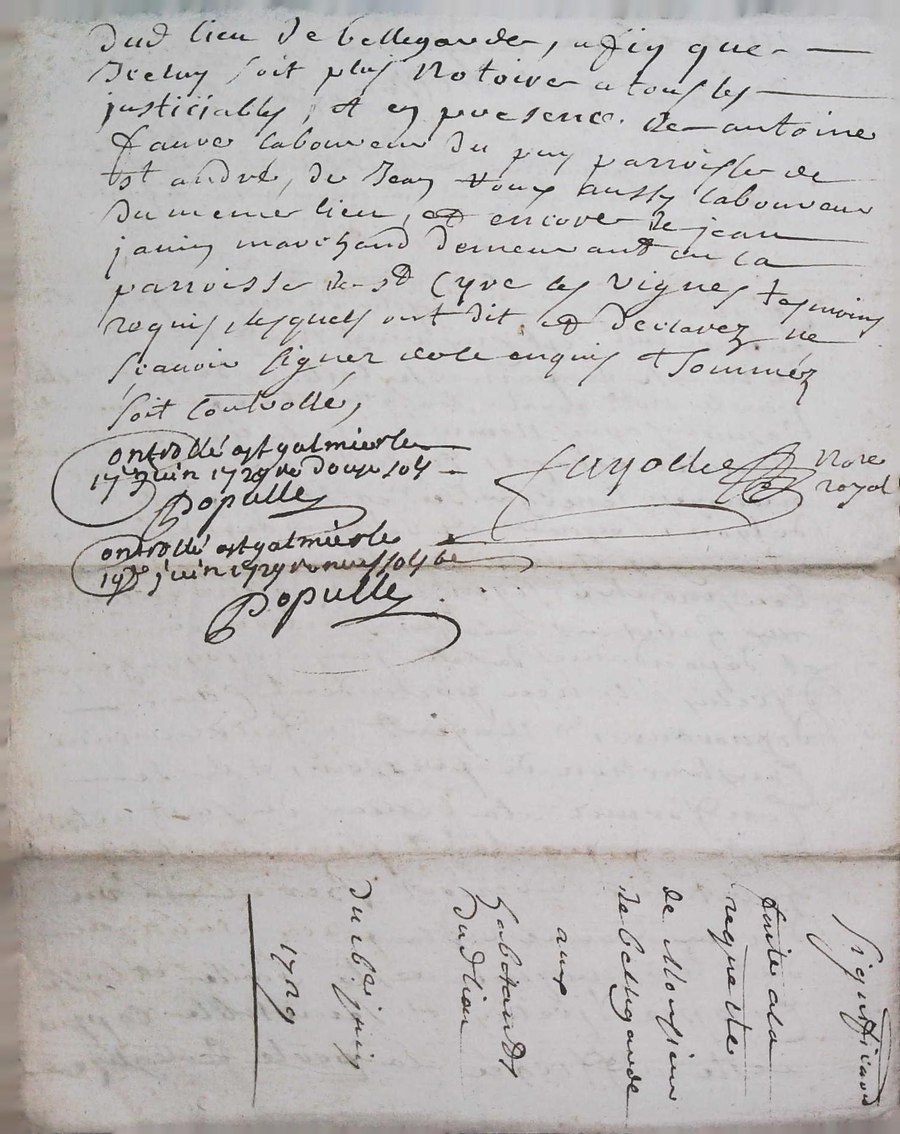 dud lieu de bellegarde, afin que
Jceluy soit plus Notoire a tous les
justiciables, et en presence de antoine
faure laboureur du puy parroisse de
st andré, de Jean aussy laboureur
du meme lieu, et encore de jean
janin marchand demeurant en la
parroisse de st Cyre les Vignes tesmoins
requis, lesquels ont dit et declarez ne
scavoir signer de ce enquis et sommez
soit Controllé,
Controllé a st galmier le
17e juin 1729 re douze sols
Populle
Nore
royal
Controllé a st galmier le
19e juin 1729 re neuf sols
Populle
Signiffication
faite a la
requette
de Monsieur
de bellegarde
aux
habitands
dudlieu
du 16e juin
1729